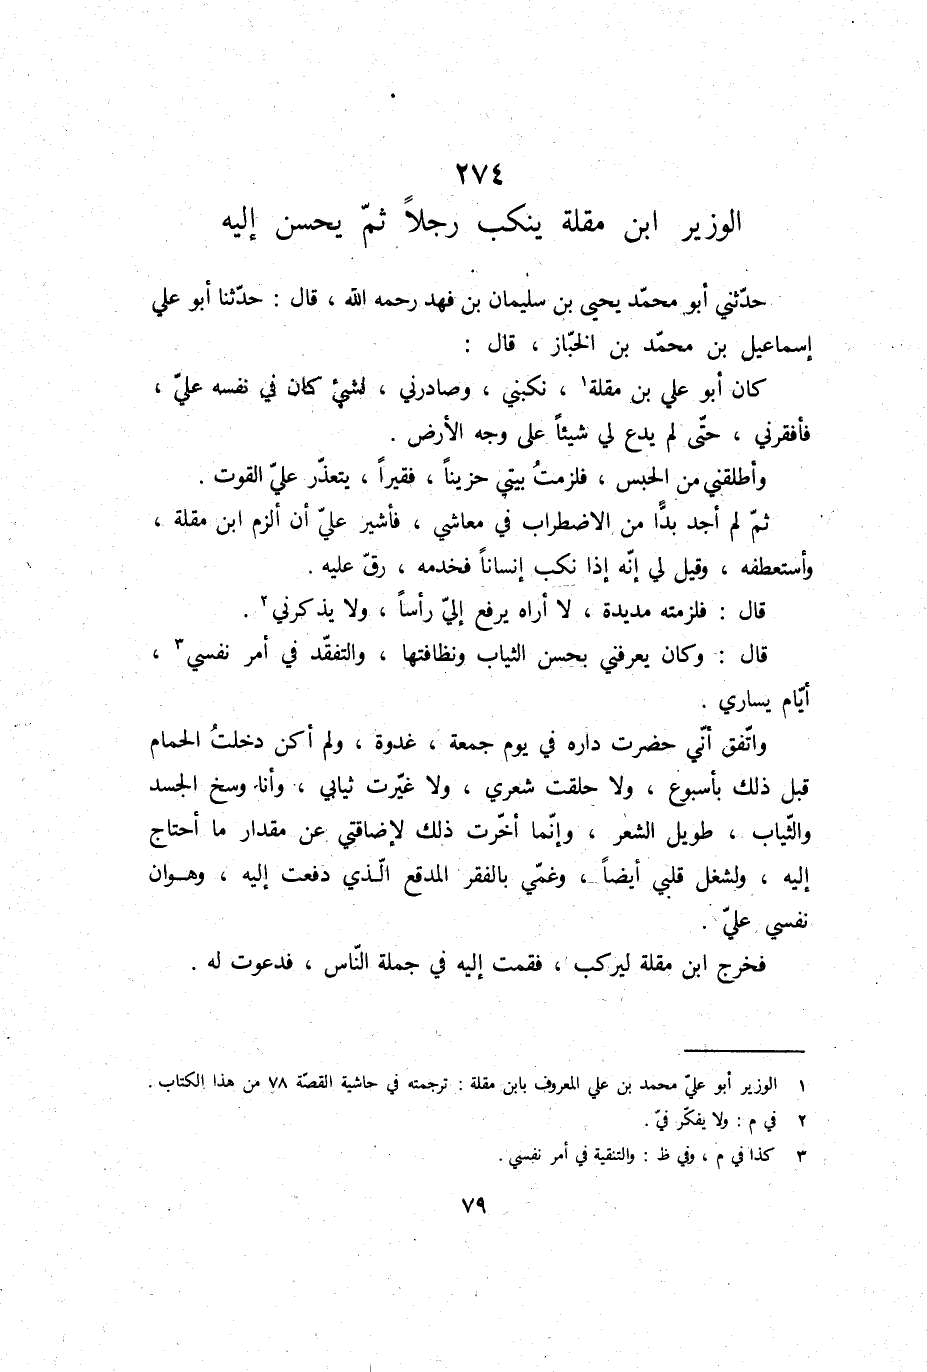 ٢٧٤
الوزير ابن مقلة ينكب رجلاً ثمّ يحسن إليه
حدّثني أبو محمّد يحيى بن سليمان بن فهد رحمه الله ، قال : حدّثنا أبو علي
إسماعيل بن محمّد بن الخبّاز ، قال :
كان أبو علي بن مقلة١ ، نكبني ، وصادرني ، لشيْ كان في نفسه عليّ ،
فأفقرني ، حتّى لم يدع لي شيئاً على وجه الأرض .
وأطلقني من الحبس ، فلزمتُ بيتي حزيناً ، فقيراً ، يتعذّر عليّ القوت .
ثمّ لم أجد بدًّا من الاضطراب في معاشي ، فأشير عليّ أن ألزم ابن مقلة ،
وأستعطفه ، وقيل لي إنّه إذا نكب إنساناً فخدمه ، رقّ عليه .
قال : فلزمته مديدة ، لا أراه يرفع إليّ رأساً ، ولا يذكرني٢ .
قال : وكان يعرفني بحسن الثياب ونظافتها ، والتفقّد في أمر نفسي٣ ،
أيّام يساري .
واتّفق أنّي حضرت داره في يوم جمعة ، غدوة ، ولم أكن دخلتُ الحمام
قبل ذلك بأسبوع ، ولا حلقت شعري ، ولا غيّرت ثيابي ، وأنا وسخ الجسد
والثّياب ، طويل الشعر ، وإنّما أخّرت ذلك لإضاقتي عن مقدار ما أحتاج
إليه ، ولشغل قلبي أيضاً ، وغمّي بالفقر المدقع الّذي دفعت إليه ، وهوان
نفسي عليّ .
فخرج ابن مقلة ليركب ، فقمت إليه في جملة النّاس ، فدعوت له .
١ الوزير أبو عليّ محمد بن علي المعروف بابن مقلة : ترجمته في حاشية القصّة ٧٨ من هذا الكتاب .
٢ في م : ولا يفكّر فيّ .
٣ كذا في م ، وفي ظ : والتنقية في أمر نفسي .
٧٩